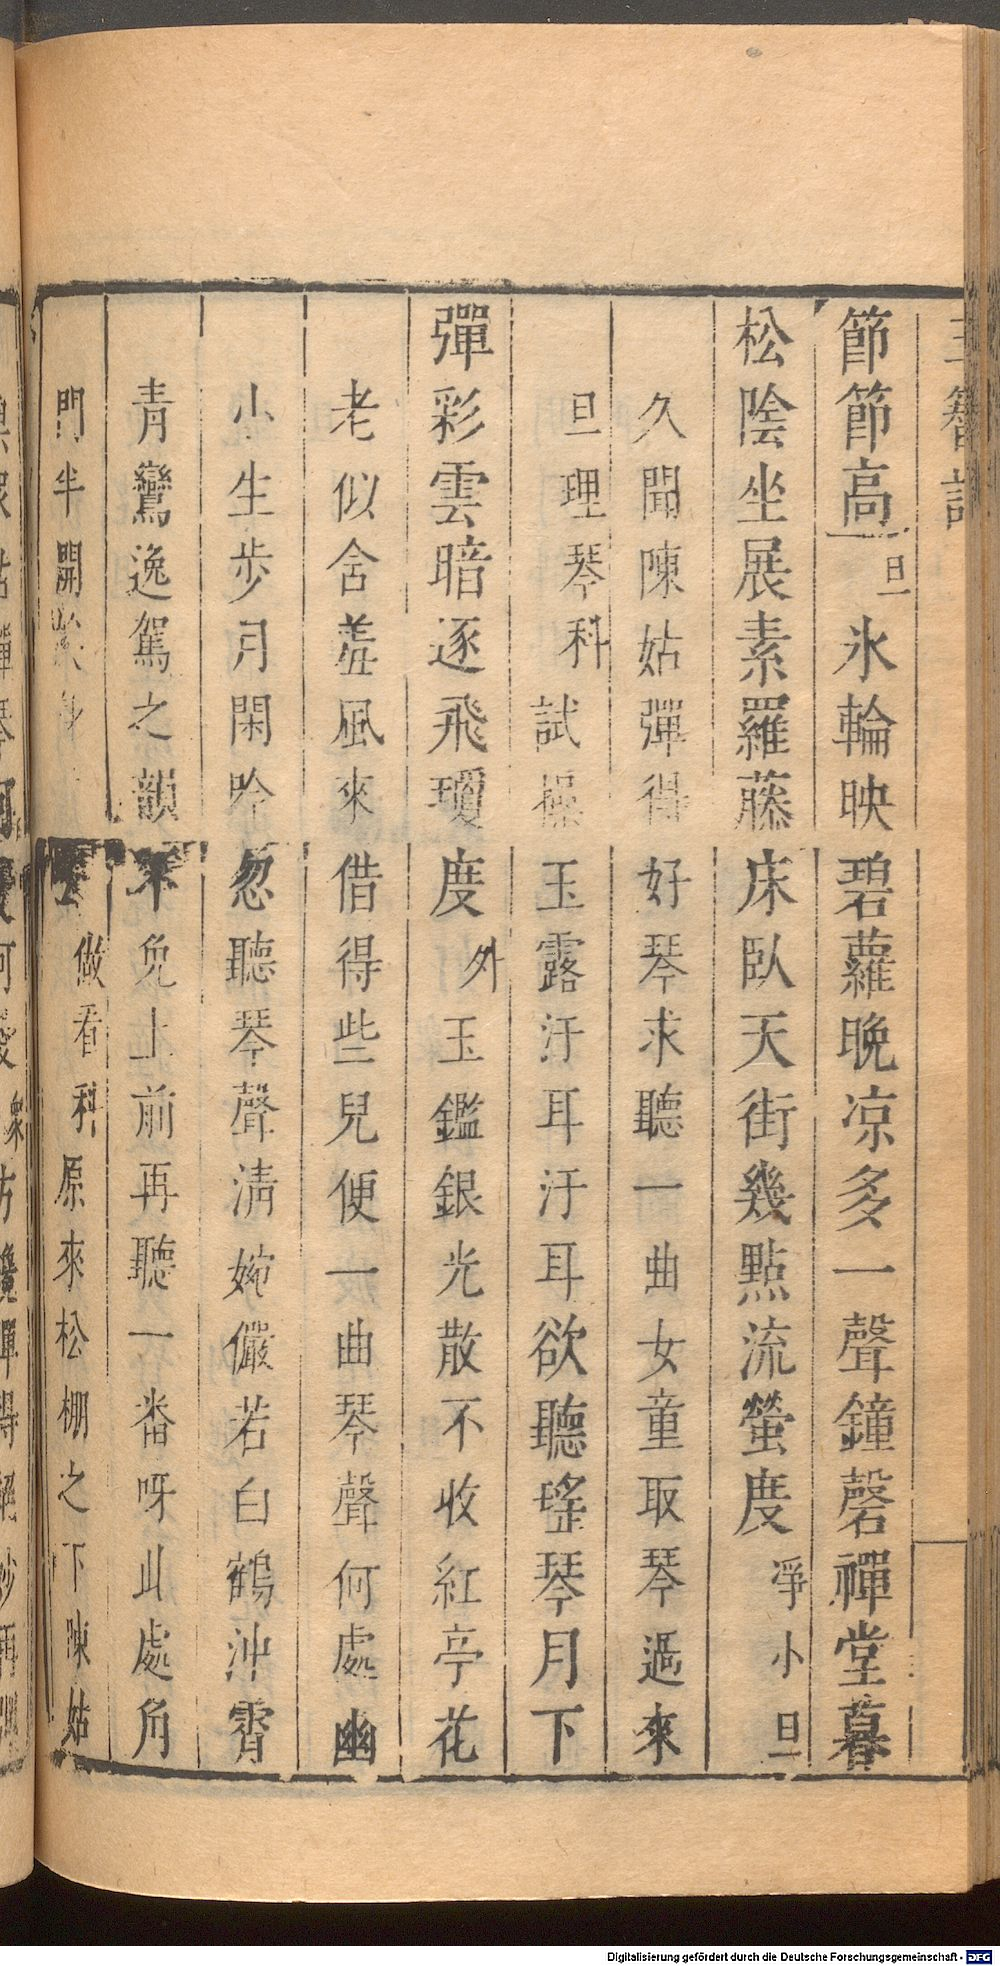 節節高旦氷輪映碧蘿晩凉多一聲鐘磬禪堂暮
松陰坐展素羅藤床臥天街幾點流螢度凈小旦
久聞陳姑彈得好琴求聽一曲女童取琴過來
旦理琴科試操玉露汙耳汙耳欲聽瑤琴月下
彈彩雲暗逐飛瓊度外玉鑑銀光散不收紅亭花
老似舍羞風來借得些兒便一曲琴聲何處幽
小生步月閑吟忽聽琴聲淸婉儼若白鶴沖霄
靑鸞逸駕之韻不免上前再聽一番呀此處角
門半開身做看科原來松棚之下陳姑
Digitalisierung gefördert durch die Deutsche Forschungsgemeinschaft - DFG